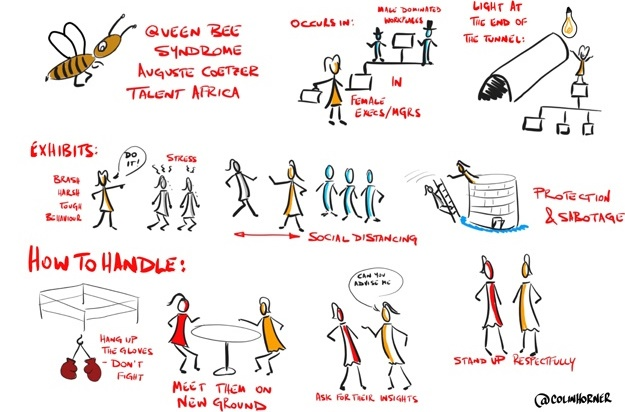 QUEEN BEE
SYNDROME
AUGUSTE COETZER
TALENT AFRICA
OCCURS IN:
MALE DOMINATED
WORKPLACES
IN
FEMALE
EXECS/MGRS
LIGHT AT
THE END OF
THE TUNNEL:
EXHIBITS:
BRASH
HARSH
TOUGH
BEHAVIOUR
DO
IT!
STRESS
SOCIAL DISTANCING
PROTECTION
& SABOTAGE
HOW TO HANDLE:
HANG UP
THE GLOVES
- DON'T
FIGHT
MEET THEM ON
NEW GROUND
CAN YOU
ADVISE ME
ASK FOR THEIR INSIGHTS
STAND UP RESPECTFULLY
@COLINHORNER